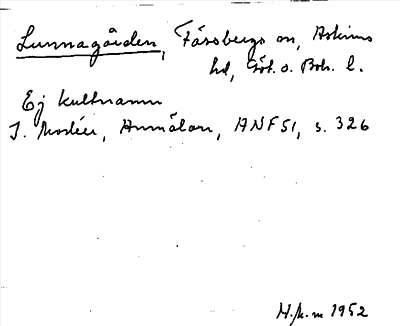 Lunnagården, Fässbergs sn, Askims
hd, Göt. o. Boh. l.
Ej kultnamn
I. Modéer, Anmälan, ANF 51, s. 326
H.k.m 1952